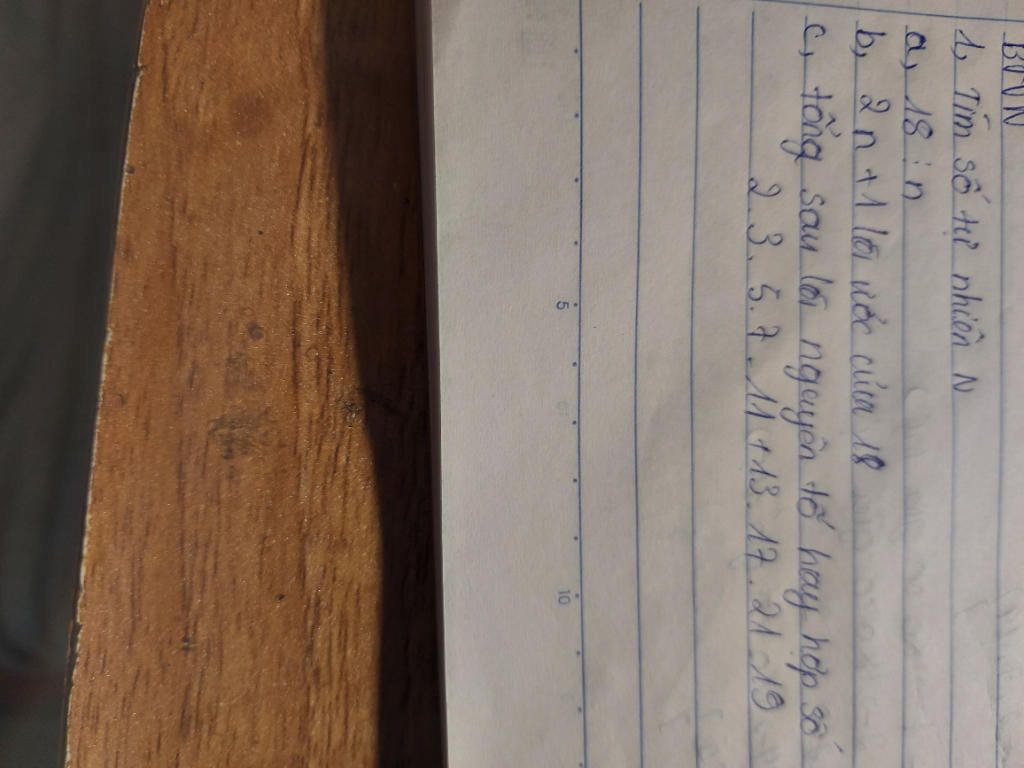 BVN
1, Tìm số tự nhiên N
a, 18 ⋮ n
b, 2n + 1 là ước của 18
c, tổng sau là nguyên tố hay hợp số
2 . 3 . 5 . 7 . 11 + 13 . 17 . 21 . 19
5
10